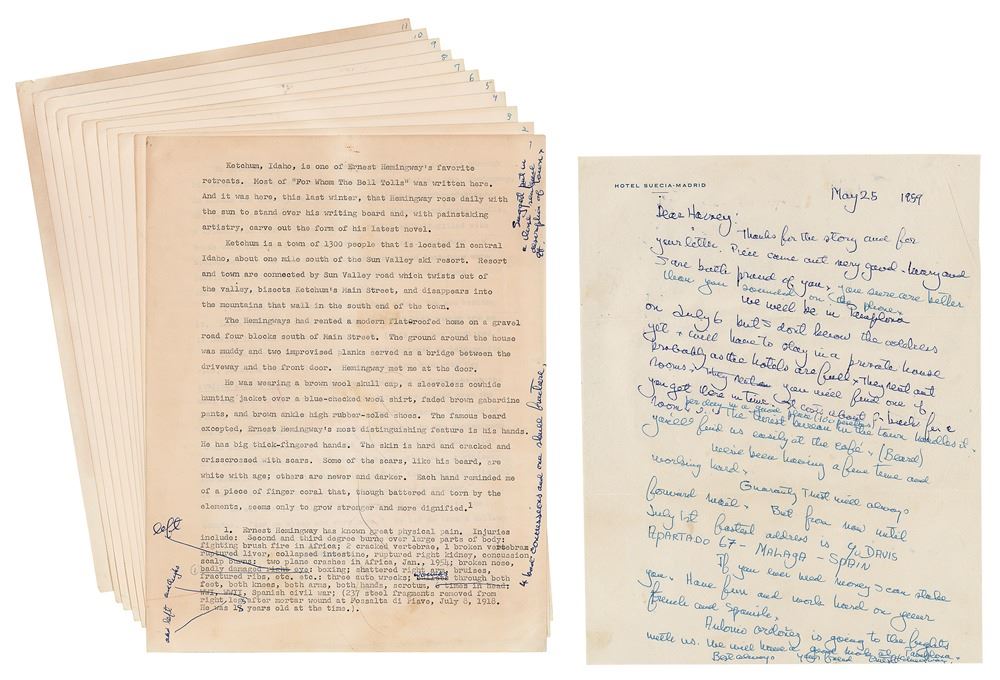 11
10
9
8
7
6
5
4
3
2
1
Ketchum, Idaho, is one of Ernest Hemingway's favorite
retreats. Most of "For Whom The Bell Tolls" was written here.
And it was here, this last winter, that Hemingway rose daily with
the sun to stand over his writing board and, with painstaking
artistry, carve out the form of his latest novel.
Ketchum is a town of 1300 people that is located in central
Idaho, about one mile south of the Sun Valley ski resort. Resort
and town are connected by Sun Valley road which twists out of
the valley, bisects Ketchum's Main Street, and disappears into
the mountains that wall in the south end of the town.
The Hemingways had rented a modern flat-roofed home on a gravel
road four blocks south of Main Street. The ground around the house
was muddy and two improvised planks served as a bridge between the
driveway and the front door. Hemingway met me at the door.
He was wearing a brown wool skull cap, a sleeveless cowhide
hunting jacket over a blue-checked wool shirt, faded brown gabardine
pants, and brown ankle high rubber-soled shoes. The famous beard
excepted, Ernest Hemingway's most distinguishing feature is his hands.
He has big thick-fingered hands. The skin is hard and cracked and
crisscrossed with scars. Some of the scars, like his beard, are
white with age; others are newer and darker. Each hand reminded me
of a piece of finger coral that, though battered and torn by the
elements, seems only to grow stronger and more dignified.1
1. Ernest Hemingway has known great physical pain. Injuries
include: Second and third degree burns over large parts of body;
fighting brush fire in Africa; 2 cracked vertebrae, 1 broken vertebrae,
ruptured liver, collapsed intestine, ruptured right kidney, concussion,
scalp burns: two plane crashes in Africa, Jan., 1954; broken nose,
badly damaged right eye: boxing; shattered right arm, bruises,
fractured ribs, etc. etc.: three auto wrecks; through both
feet, both knees, both arms, both hands, scrotum, 6 times in head:
WWI, WWII, Spanish civil war; (237 steel fragments removed from
right leg after mortar wound at Fossalta di Piave, July 8, 1918.
He was 18 years old at the time.).
Suggest put in
description of town.
4 bad concussions and one skull fracture.
left
left
HOTEL SUECIA-MADRID
May 25 1959
Dear Harvey:
Thanks for the story and for
your letter. Piece came out very good. Mary and
I are both proud of you. you sure are better
than you sounded on the phone.
We will be in Pamplona
on July 6 but I don't know the address
yet. will have to stay in a private house
probably as the hotels are full. They rent out
rooms. you will find one if
you get there in time. for a
room. the tourist bureau in the town handles it.
you'll find us easily at the café. (Beard)
We've been having a fine time and
working hard.
Guaranty Trust will always
forward mail. But from now until
July 1st fastest address is c/o DAVIS
APARTADO 67 - MALAGA - SPAIN
If you ever need money I can stake
you. Have fun and work hard on your
French and Spanish.
Antonio Ordóñez is going to the fights
with us. We will have a good mob at Pamplona.
Best always your friend Ernest Hemingway